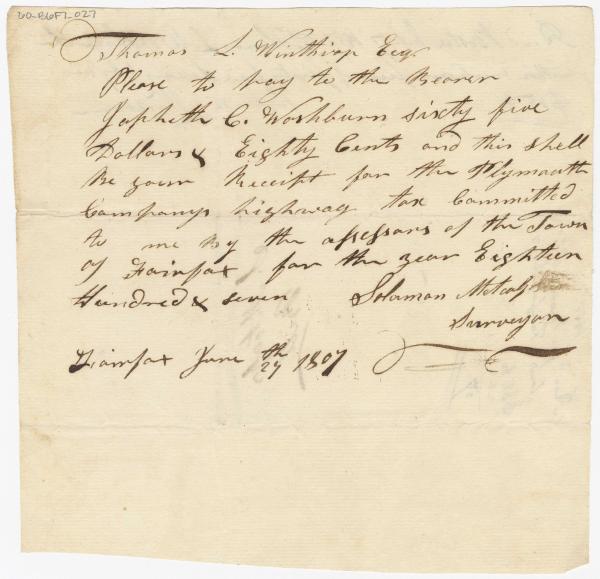 60-B6F7-027
Thomas L. Winthrop Esq.
Please to pay to the Bearer
Japheth C. Washburn sixty five
Dollars & Eighty Cents and this shell
be your Receipt for the Plymouth
Companys highway tax Committed
to me by the assessors of the Town
of Fairfax for the year Eighteen
Hundred & seven Soloman Metcalf
Surveyor
Fairfax June 27th 1807